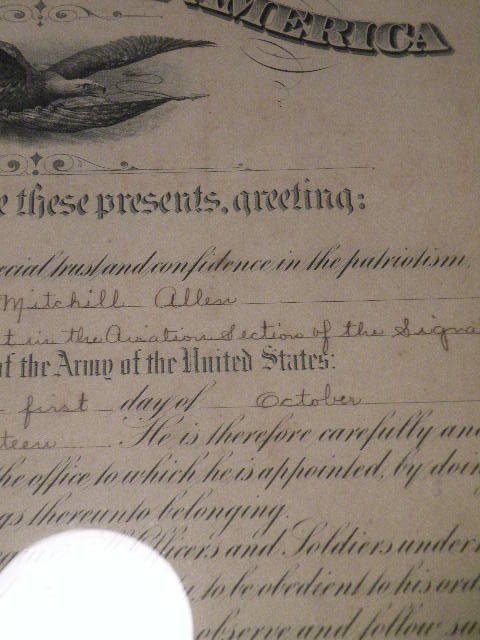 AMERICA
these presents, greeting:
trust and confidence in the patriotism,
Mitchill Allen
in the Aviation Section of the
of the Army of the United States:
first day of October
He is therefore carefully
the office to which he is appointed, by
thereunto belonging.
and Soldiers under
to be obedient to his
observe and follow